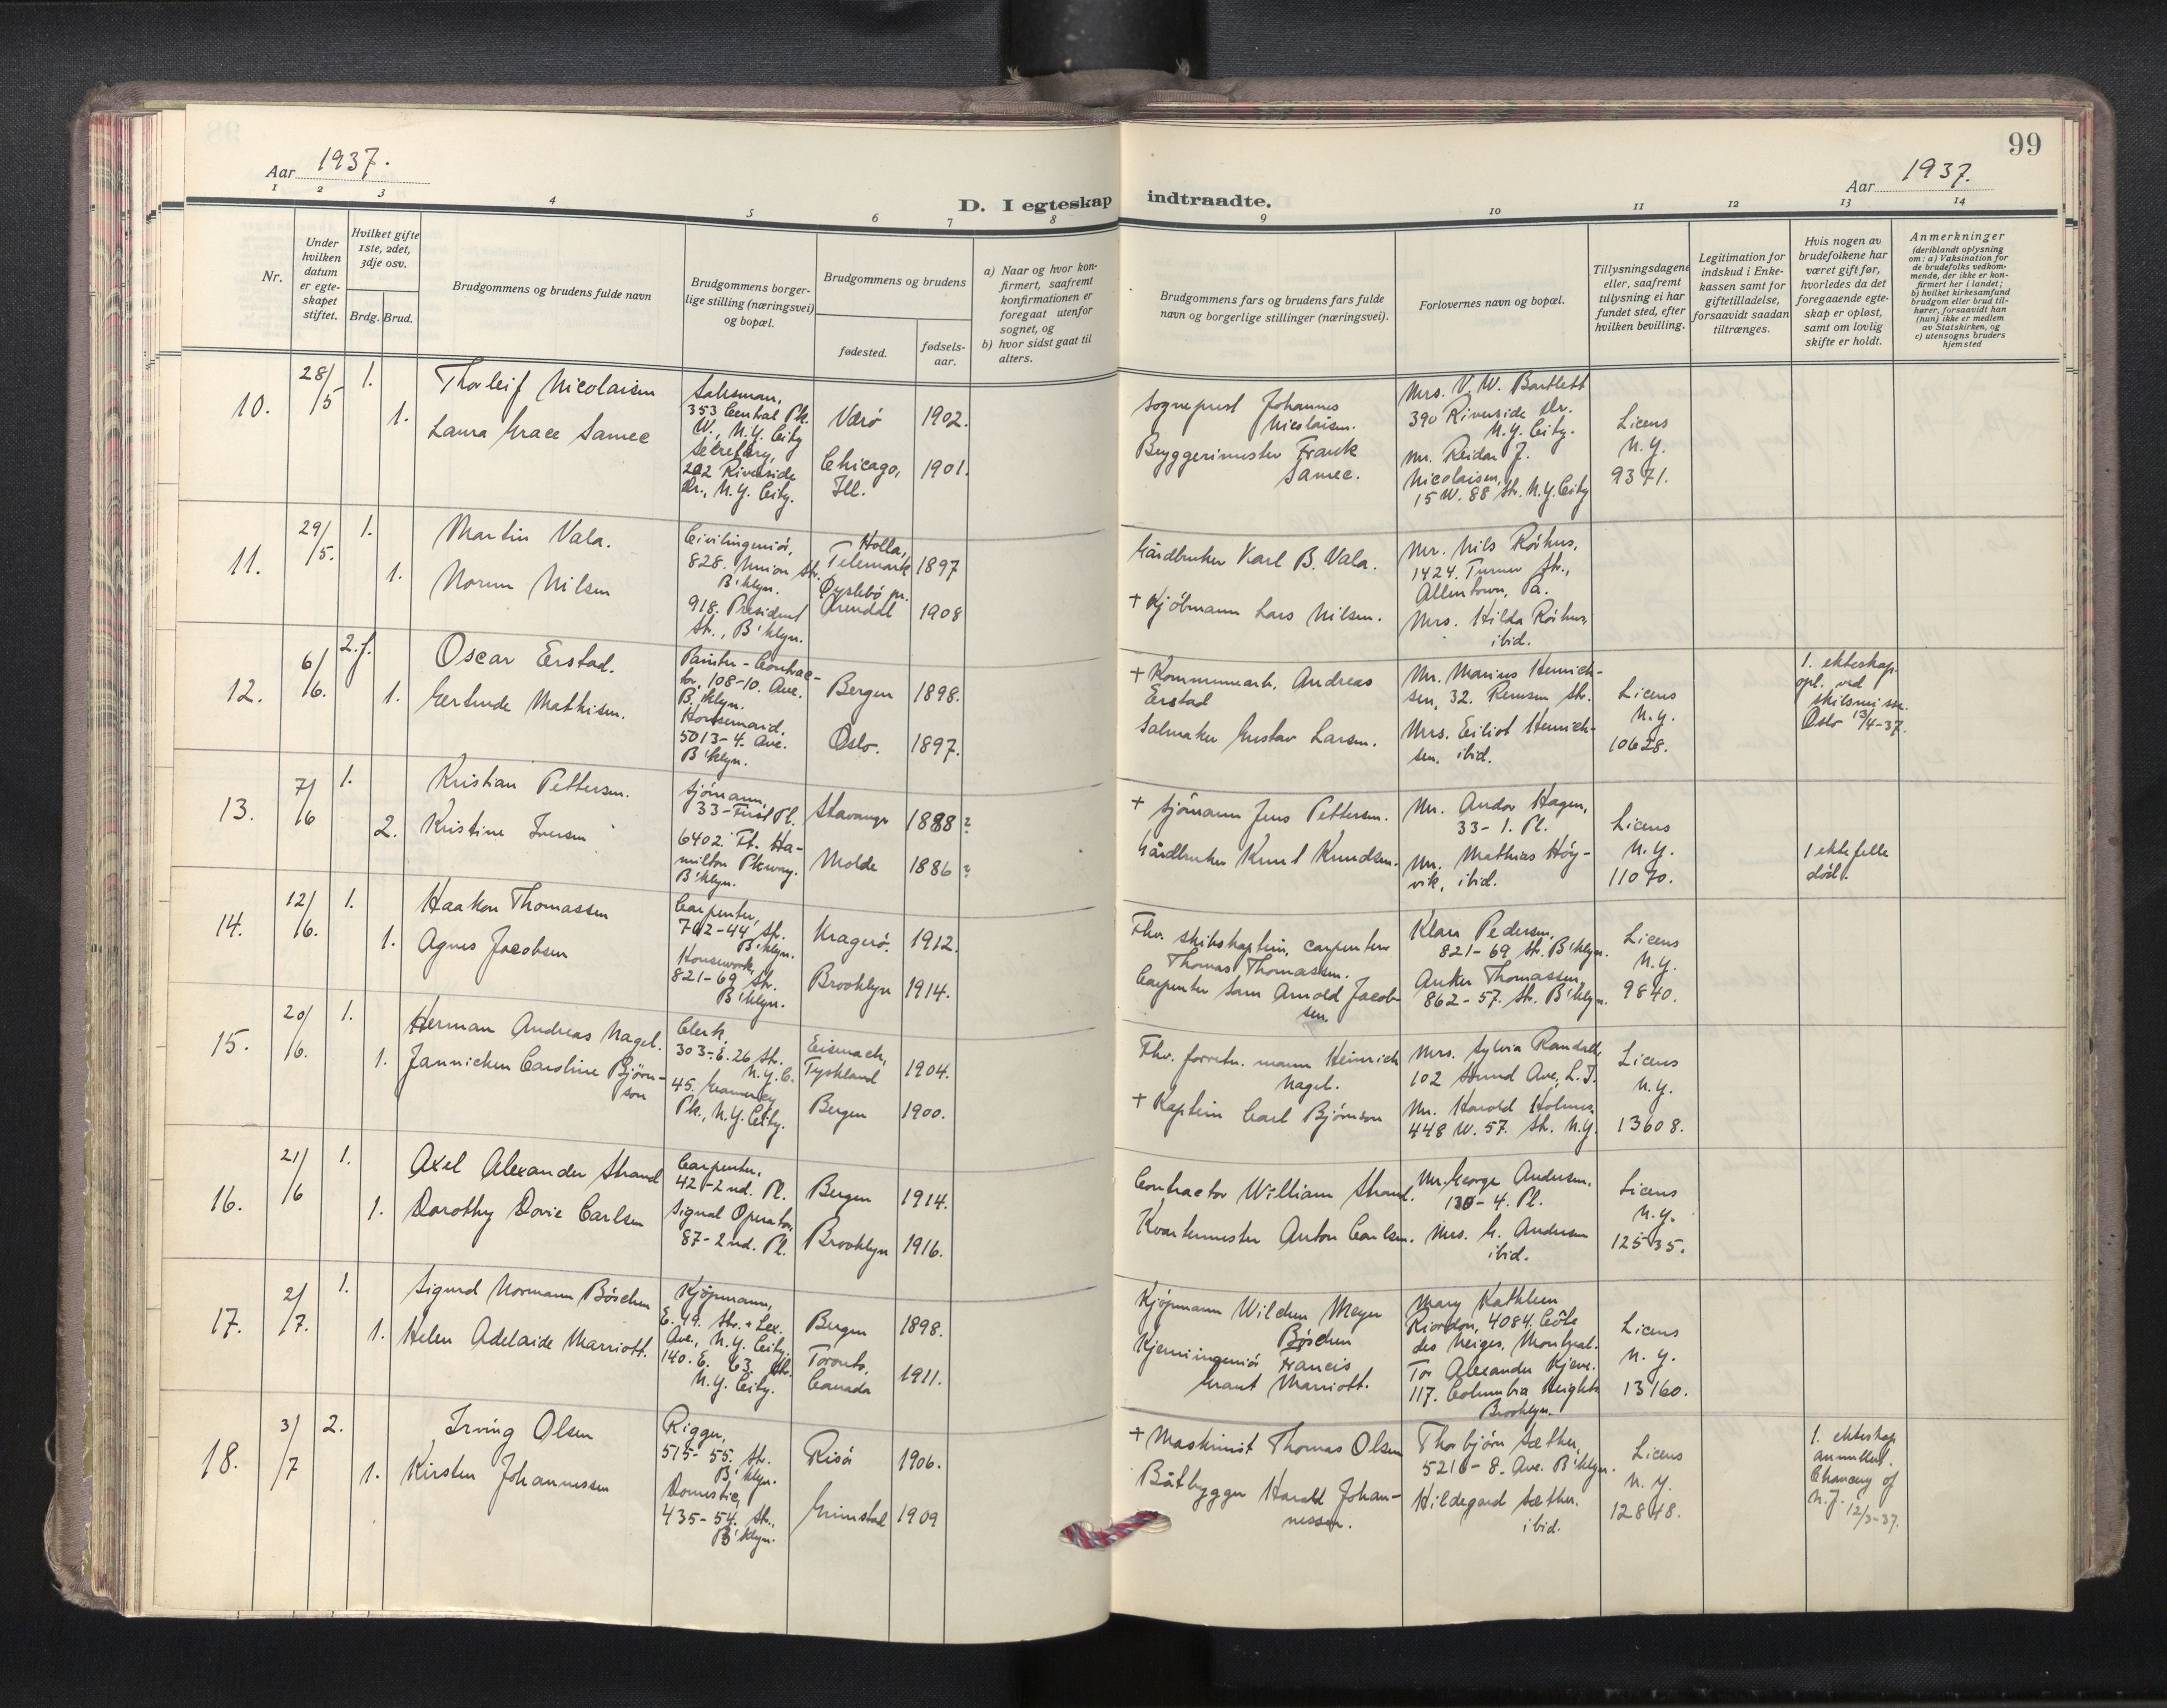 99
Aar 1937.
Aar 1937.
D. I egteskap indtraadte.
1 2 3 4 5 6 7 8 9 10 11 12 13 14
Nr.
Under
hvilken
datum
er egte-
skapet
stiftet.
Hvilket gifte
1ste, 2det,
3dje osv.
Brdg. Brud.
Brudgommens og brudens fulde navn
Brudgommens borger-
lige stilling (næringsvei)
og bopæl.
Brudgommens og brudens
fødested.
fødsels-
aar.
a) Naar og hvor kon-
firmert, saafremt
konfirmationen er
foregaat utenfor
sognet, og
b) hvor sidst gaat til
alters.
Brudgommens fars og brudens fars fulde
navn og borgerlige stillinger (næringsvei).
Forlovernes navn og bopæl.
Tillysningsdagene
eller, saafremt
tillysning ei har
fundet sted, efter
hvilken bevilling.
Legitimation for
indskud i Enke-
kassen samt for
giftetilladelse,
forsaavidt saadan
tiltrænges.
Hvis nogen av
brudefolkene har
været gift før,
hvorledes da det
foregaaende egte-
skap er opløst,
samt om lovlig
skifte er holdt.
Anmerkninger
(deriblandt oplysning
om: a) Vaksination for
de brudefolks vedkom-
mende, der ikke er kon-
firmert her i landet;
b) hvilket kirkesamfund
brudgom eller brud til-
hører, forsaavidt han
(hun) ikke er medlem
av Statskirken, og
c) utensogns bruders
hjemsted
10.
28/5
1.
1.
Thorleif Nicolaisen
Laura Grace Samec
Salesman,
353 Central Pk.
W., N.Y. City
Secretary,
202 Riverside
Dr., N.Y. City.
Værö
Chicago,
Ill.
1902.
1901.
Sogneprest Johannes
Nicolaisen.
Byggerimester Frank
Samec.
Mrs. V. W. Bartlett
390 Riverside Dr.
N.Y. City.
Mr. Reidar J.
Nicolaisen,
15 W. 88 Str. N.Y. City
Licens
N.Y.
9371.
11.
29/5.
1.
1.
Martin Vala.
Norun Nilsen
Civilingeniör,
828. Union Str.
B'klyn.
918. President
Str., B'klyn.
Holla,
Telemark
Öyslebö pr.
Arendal
1897
1908
Gårdbruker Karl B. Vala.
+ Kjöbmann Lars Nilsen.
Mr. Nils Röihus,
1424. Turner Str.,
Allentown, Pa.
Mrs. Hilda Röihus,
ibid.
12.
6/6.
2. f.
1.
Oscar Erstad.
Gertrude Mathisen.
Painter-Contrac-
tor, 108-10. Ave.
B'klyn.
Housemaid,
5013-4. Ave.
B'klyn.
Bergen
Oslo.
1898.
1897.
+ Kommunearb. Andreas
Erstad
Salmaker Gustav Larsen.
Mr. Marius Henrich-
sen, 32. Remsen Str.
Mrs. Eiliot Henrich-
sen, ibid.
Licens
N.Y.
10628.
1. ekteskap
opl. ved
skilsmisse
Oslo 13/4-37.
13.
7/6
1.
2.
Kristian Pettersen.
Kristine Iversen
Sjömann,
33-First Pl.
6402 Ft. Ha-
milton Pkway.
B'klyn.
Stavanger
Molde
1888?
1886?
+ Sjömann Jens Pettersen.
Gårdbruker Knut Knudsen.
Mr. Andor Hagen,
33-1. Pl.
Mr. Mathias Höy-
vik, ibid.
Licens
N.Y.
11070.
1 ektefelle
död.
14.
12/6.
1.
1.
Haakon Thomassen
Agnes Jacobsen
Carpenter,
702-44 Str.
B'klyn.
Housework,
821-69 Str.
B'klyn.
Kragerö.
Brooklyn
1912.
1914.
Fhv. skibskaptein, carpenter
Thomas Thomassen.
Carpenter Sam Arnold Jacob-
sen.
Klara Pedersen,
821-69 Str. B'klyn.
Anker Thomassen,
862-57. Str. B'klyn.
Licens
N.Y.
9840.
15.
20/6.
1.
1.
Herman Andreas Nagel.
Jannicken Caroline Björn-
son
Clerk,
303-E. 26 Str.
N.Y.C.
45. Gramercy
Pk., N.Y. City.
Eisenach,
Tyskland
Bergen
1904.
1900.
Fhv. forretn. mann Heinrich
Nagel.
+ Kaptein Carl Björnson
Mrs. Sylvia Randall,
102 Sound Ave, L.I.
Mr. Harold Holmes,
448 W. 57. Str. N.Y.
Licens
N.Y.
13608.
16.
21/6
1.
1.
Axel Alexander Strand
Dorothy Dovie Carlsen
Carpenter,
42-2nd. Pl.
Signal Operator,
87-2nd. Pl.
Bergen
Brooklyn
1914.
1916.
Contractor William Strand.
Kvartermester Anton Carlsen.
Mr. George Andersen,
130-4. Pl.
Mrs. G. Andersen
ibid.
Licens
N.Y.
12535.
17.
2/7.
1.
1.
Sigurd Normann Böschen
Helen Adelaide Marriott.
Kjöpmann,
E. 49. Str. + Lex.
Ave., N.Y. City.
140. E. 63. Str.
N.Y. City.
Bergen
Toronto,
Canada
1898.
1911.
Kjöpmann Wilchen Meyer
Böschen
Kjemiingeniör Francis
Grant Marriott.
Mary Kathleen
Riordon, 4084. Côte
des Neiges, Montreal.
Tor Alexander Kjær.
117. Columbia Heights
Brooklyn.
Licens
N.Y.
13160.
18.
3/7
2.
1.
Irving Olsen
Kirsten Johannessen
Rigger,
515-55. Str.
B'klyn.
Domestic,
435-54. Str.,
B'klyn.
Risör
Grimstad
1906.
1909
+ Maskinist Thomas Olsen
Båtbygger Harald Johan-
nessen.
Thorbjörn Sæther,
5216-8. Ave. B'klyn.
Hildegard Sæther.
ibid.
Licens
N.Y.
12848.
1. ekteskap
annullert.
Chancery of
N.J. 12/3-37.